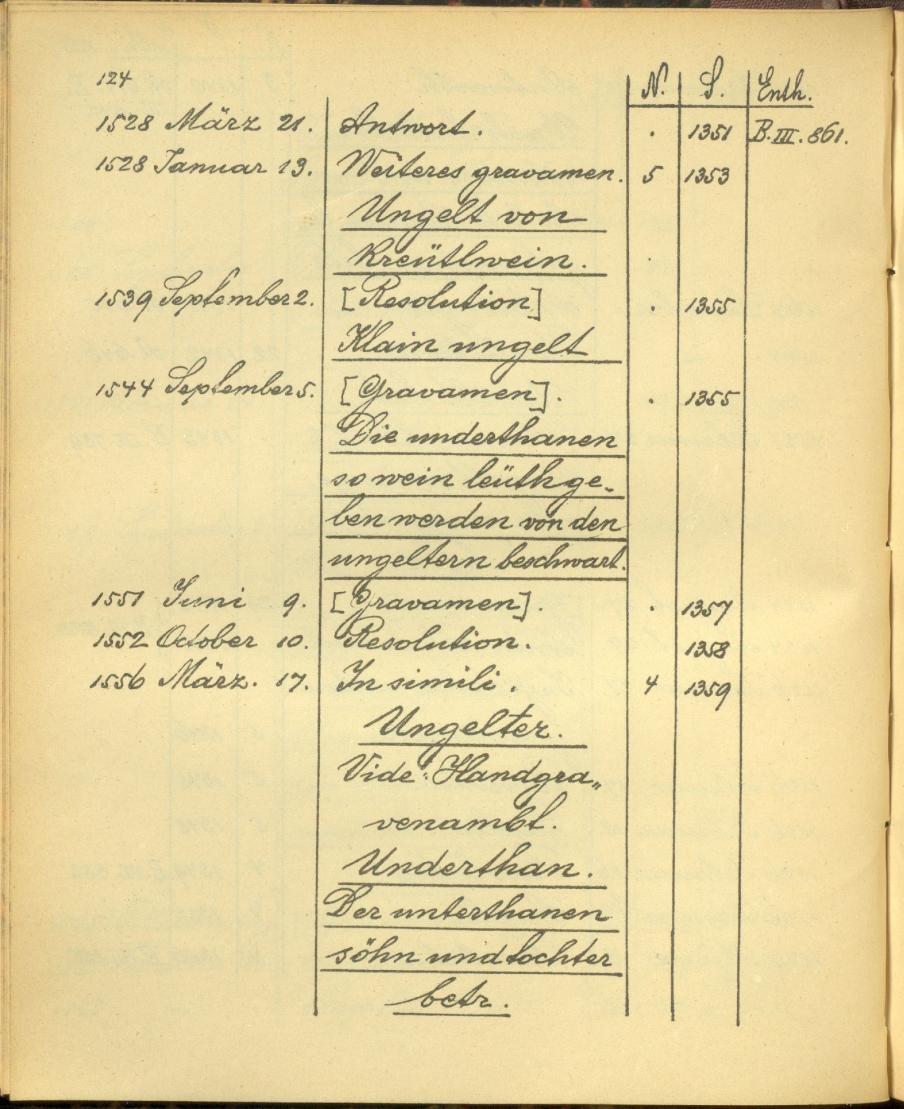 124
N. S. Enth.
1528 März 21. Antwort. . 1351 B.III.861.
1528 Januar 13. Weiteres gravamen. 5 1353
Ungelt von
kreütlwein. .
1539 September 2. [Resolution] . 1355
Klain ungelt
1544 September 5. [Gravamen]. . 1355
Die underthanen
so wein leüthge„
ben werden von den
ungeltern beschwart.
1551 Juni 9. [Gravamen]. . 1357
1552 October 10. Resolution. 1358
1556 März. 17. In simili. 4 1359
Ungelter.
Vide: Handgra„
venambt.
Underthan.
Der unterthanen
söhn und tochter
betr.